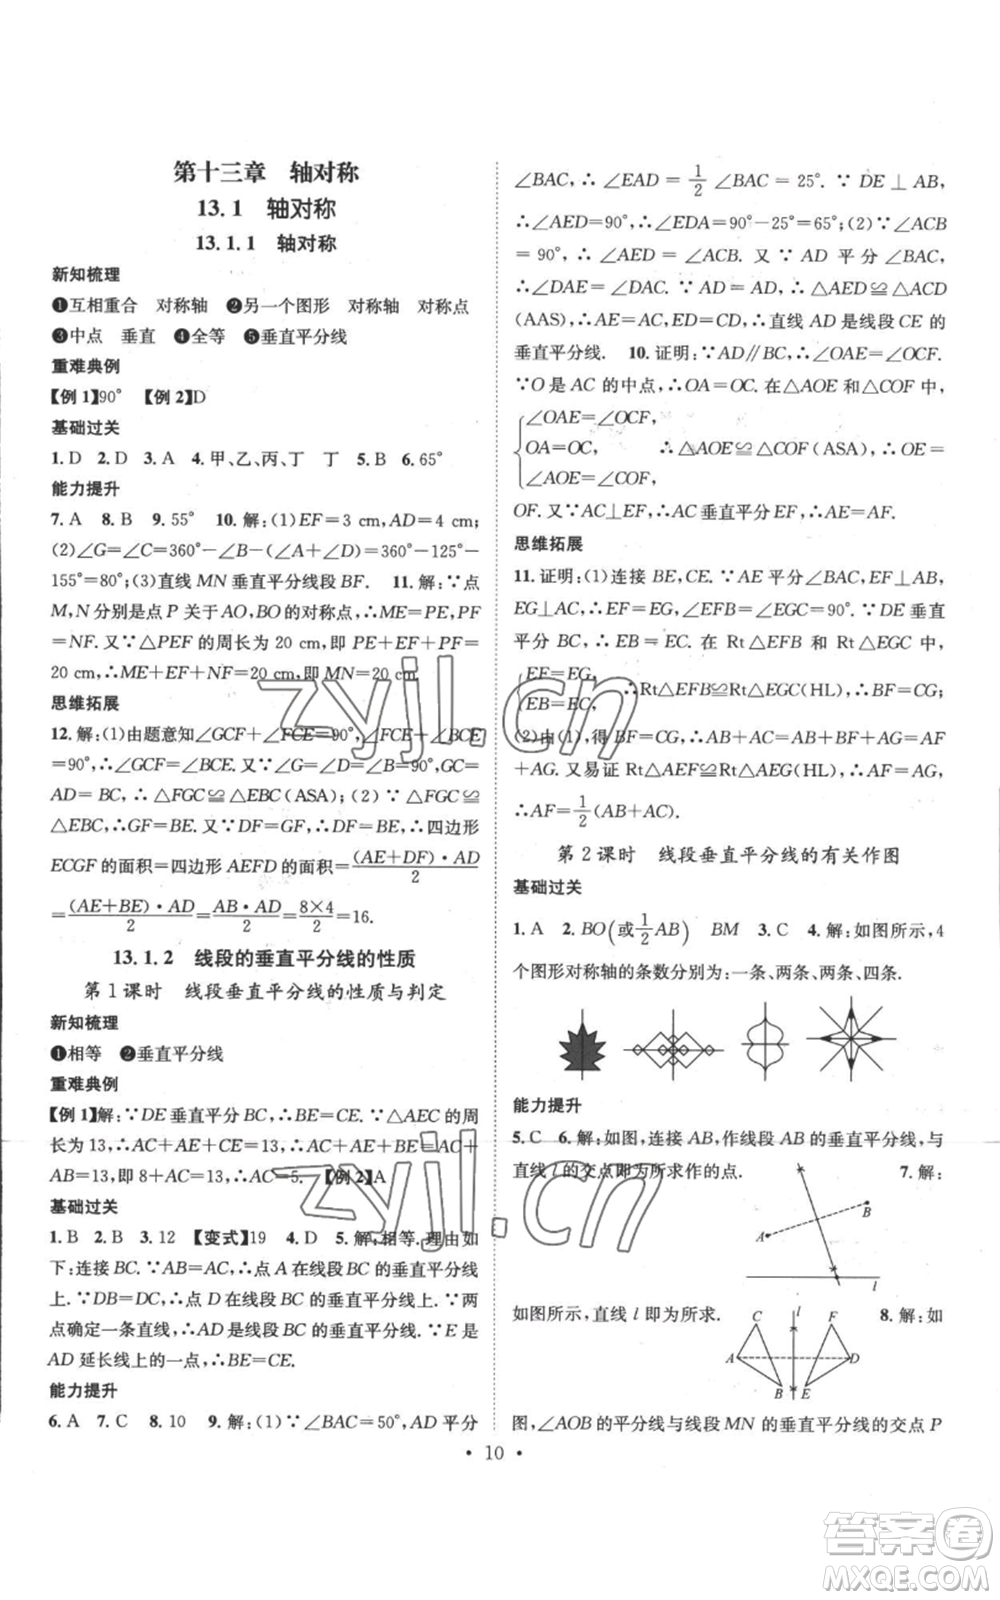 第十三章 轴对称
13.1 轴对称
13.1.1 轴对称
新知梳理
❶互相重合 对称轴 ❷另一个图形 对称轴 对称点
❸中点 垂直 ❹全等 ❺垂直平分线
重难典例
【例1】90° 【例2】D
基础过关
1. D 2. D 3. A 4. 甲、乙、丙、丁 丁 5. B 6. 65°
能力提升
7. A 8. B 9. 55° 10. 解:(1)EF=3 cm,AD=4 cm;
(2)∠G=∠C=360°-∠B-(∠A+∠D)=360°-125°-
155°=80°;(3)直线 MN 垂直平分线段 BF. 11. 解:∵点
M,N 分别是点 P 关于 AO,BO 的对称点,∴ME=PE,PF
=NF. 又∵△PEF 的周长为 20 cm,即 PE+EF+PF=
20 cm,∴ME+EF+NF=20 cm,即 MN=20 cm.
思维拓展
12. 解:(1)由题意知∠GCF+∠FCE=90°,∠FCE+∠BCE
=90°,∴∠GCF=∠BCE. 又∵∠G=∠B=90°,GC=
AD=BC,∴△FGC≌△EBC(ASA);(2)∵△FGC≌
△EBC,∴GF=BE. 又∵DF=GF,∴DF=BE,∴四边形
ECGF 的面积=四边形 AEFD 的面积=(AE+DF)·AD/2
=(AE+BE)·AD/2=AB·AD/2=8×4/2=16.
13.1.2 线段的垂直平分线的性质
第1课时 线段垂直平分线的性质与判定
新知梳理
❶相等 ❷垂直平分线
重难典例
【例1】解:∵DE 垂直平分 BC,∴BE=CE. ∵△AEC 的周
长为 13,∴AC+AE+CE=13,∴AC+AE+BE=AC+
AB=13,即 8+AC=13,∴AC=5. 【例2】A
基础过关
1. B 2. B 3. 12 【变式】19 4. D 5. 解:相等. 理由如
下:连接 BC. ∵AB=AC,∴点 A 在线段 BC 的垂直平分线
上. ∵DB=DC,∴点 D 在线段 BC 的垂直平分线上. ∵两
点确定一条直线,∴AD 是线段 BC 的垂直平分线. ∵E 是
AD 延长线上的一点,∴BE=CE.
能力提升
6. A 7. C 8. 10 9. 解:(1)∵∠BAC=50°,AD 平分
∠BAC,∴∠EAD=1/2∠BAC=25°. ∵DE⊥AB,
∴∠AED=90°,∴∠EDA=90°-25°=65°;(2)∵∠ACB
=90°,∴∠AED=90°=∠ACB. 又∵AD 平分∠BAC,
∴∠DAE=∠DAC. ∵AD=AD,∴△AED≌△ACD
(AAS),∴AE=AC,ED=CD,∴直线 AD 是线段 CE 的
垂直平分线. 10. 证明:∵AD∥BC,∴∠OAE=∠OCF.
∵O 是 AC 的中点,∴OA=OC. 在△AOE 和△COF 中,
∠OAE=∠OCF,
OA=OC, ∴△AOE≌△COF(ASA),∴OE=
∠AOE=∠COF,
OF. 又∵AC⊥EF,∴AC 垂直平分 EF,∴AE=AF.
思维拓展
11. 证明:(1)连接 BE,CE. ∵AE 平分∠BAC,EF⊥AB,
EG⊥AC,∴EF=EG,∠EFB=∠EGC=90°. ∵DE 垂直
平分 BC,∴EB=EC. 在 Rt△EFB 和 Rt△EGC 中,
EF=EG,
∴Rt△EFB≌Rt△EGC(HL),∴BF=CG;
EB=EC,
(2)由(1),得 BF=CG,∴AB+AC=AB+BF+AG=AF
+AG. 又易证 Rt△AEF≌Rt△AEG(HL),∴AF=AG,
∴AF=1/2(AB+AC).
第2课时 线段垂直平分线的有关作图
基础过关
1. A 2. BO(或1/2AB) BM 3. C 4. 解:如图所示,4
个图形对称轴的条数分别为:一条、两条、两条、四条.
能力提升
5. C 6. 解:如图,连接 AB,作线段 AB 的垂直平分线,与
直线 l 的交点即为所求作的点. 7. 解:
A B l
如图所示,直线 l 即为所求. 8. 解:如
C l F
A D
B E
图,∠AOB 的平分线与线段 MN 的垂直平分线的交点 P
• 10 •
zyjl.cn
zyjl.cn
答案圈
MXQE.COM